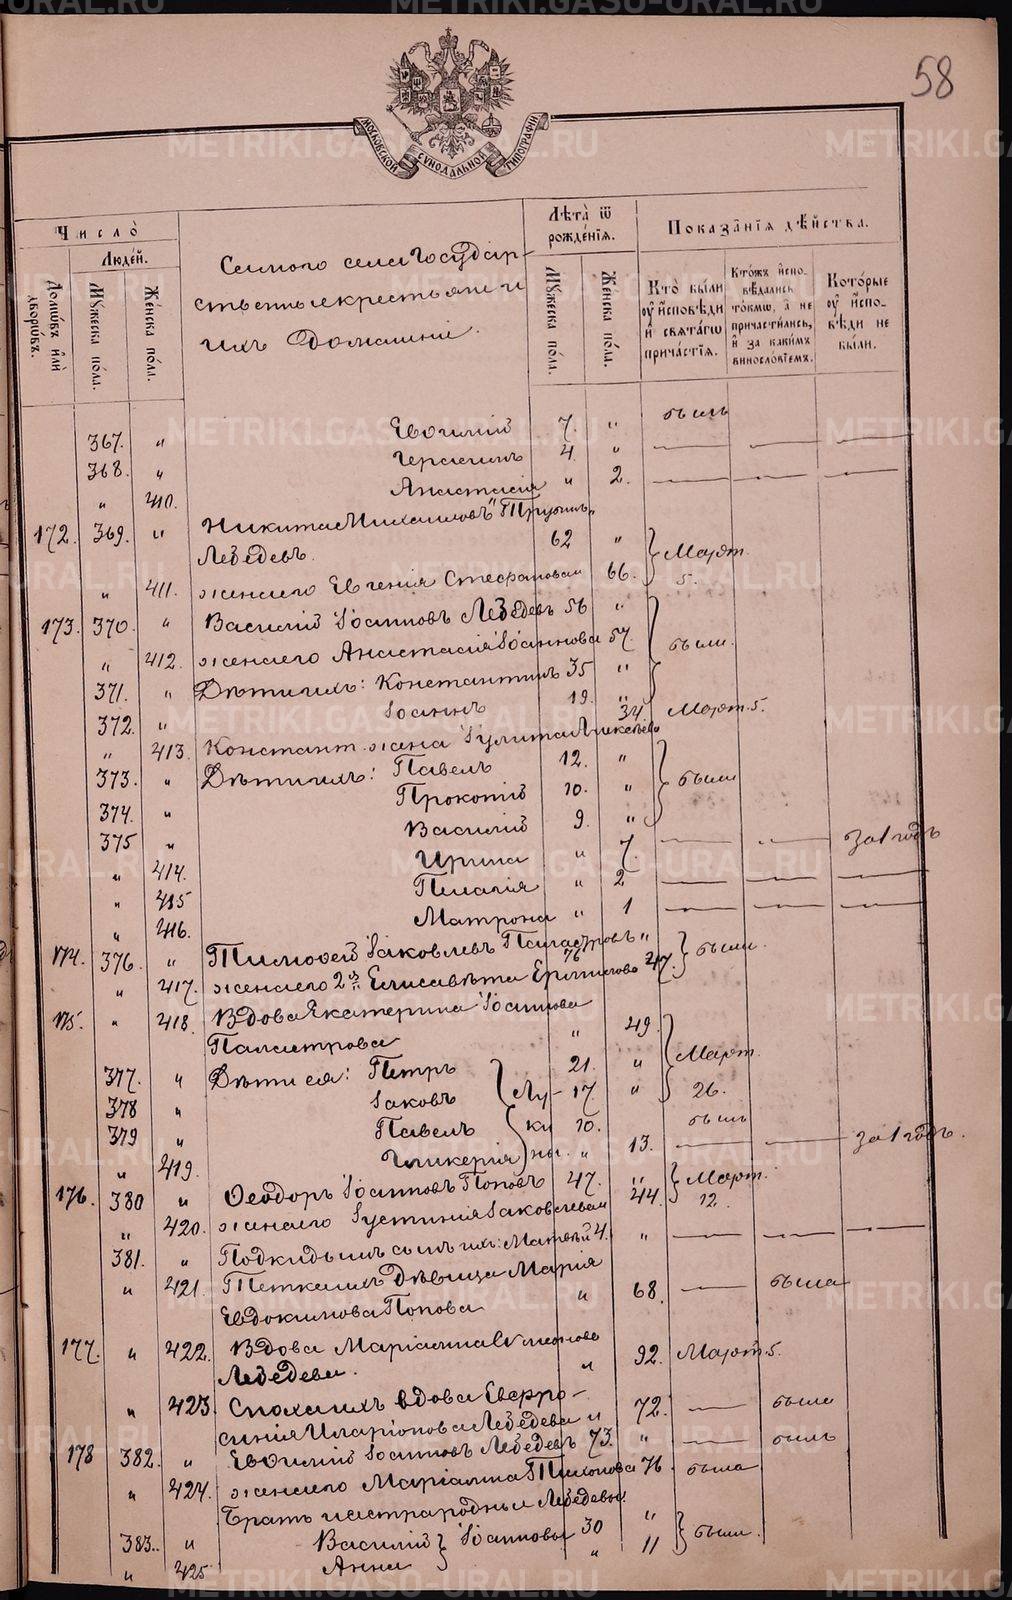 58
МОСКОВСКОЙ СѴНОДАЛЬНОЙ ТИПОГРАФІИ
Число
Людей.
Домовъ или дворовъ.
Мужеска пола.
Женска пола.
Самого села Государ-
ственные крестьяне и
ихъ домашніе.
Лѣта ѿ рожденія.
Мужеска пола.
Женска пола.
Показанія дѣйства.
Кто были у исповѣди и святагѡ причастія.
Ктожъ исповѣдались токмѡ, а не причастились, и за какимъ винословіемъ.
Которые у исповѣди не были.
367. " Евѳимій 7. " былъ
368. " Герасимъ 4. " — — —
" 410. Анастасія " 2. — — —
172. 369. " Никита Михаиловъ
Лебедевъ. 62 "
" 411. жена его Евгенія Стефановна 66. } Март. 5.
173. 370. " Василій Іоанновъ Лебедевъ 56 "
" 412. жена его Анастасія Іоаннова 57. } были.
371. " Дѣти ихъ: Константинъ 35 "
372. " Іоаннъ 19. " } Март. 5.
" 413. Констант. жена Іулита Алексѣева 34.
373. " Дѣти ихъ: Павелъ 12. "
374. " Прокопій 10. " } были
375 " Василій 9. "
" 414. Ирина " 7 — — за 1 годъ
" 415 Пелагія " 2 — — —
" 416. Матрона " 1 — — —
174. 376. " Тимоѳей Іаковлевъ 76 "
" 417. жена его 2я Елисавета Ермилова 47. } были.
175. " 418. Вдова Екатерина Іоаннова
" 49.
377. " Дѣти ея: Петръ 21. " } Март. 26.
378 " Іаковъ } Лу- 17. "
379 " Павелъ } ки 10. былъ
" 419. Гликерія } ны. " 13. — — за 1 годъ.
176. 380 " Ѳеодоръ Іоанновъ Поповъ 47. "
" 420. жена его Іустинія Іаковлева 44. } Март. 12.
381. " Подкидышъ сынъ ихъ: Матвѣй 4. " — — —
" 421. Тетка ихъ дѣвица Марія
Евдокимова Попова " 68. — была
177. " 422. Вдова Маріамна
Лебедева. " 92. Март. 5.
" 423. Сноха ихъ вдова Евфро-
синія Иларіонова Лебедева " 72. — была
178 382. " Евѳимій Іоанновъ Лебедевъ 73. " — былъ
" 424. жена его Маріамна Тихонова 76. была
Братъ и сестра родные Лебедевы.
383. " Василій } Іоанновы 30 "
" 425 Анна " 11 } были.
METRIKI.GASO-URAL.RU